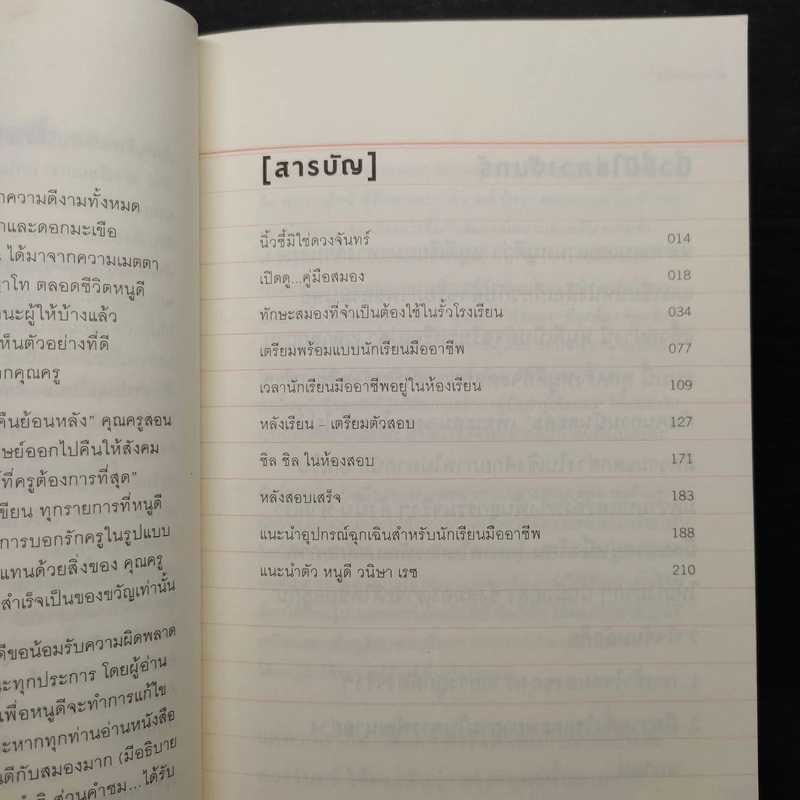 ความดีงามทั้งหมด
และดอกมะเขือ
ได้มาจากความเมตตา
ตลอดชีวิตหนูดี
ผู้ให้บ้างแล้ว
เห็นตัวอย่างที่ดี
คุณครู
คืนย้อนหลัง" คุณครูสอน
ออกไปคืนให้สังคม
ที่ครูต้องการที่สุด"
เขียน ทุกรายการที่หนูดี
การบอกรักครูในรูปแบบ
แทนด้วยสิ่งของ คุณครู
สำเร็จเป็นของขวัญเท่านั้น
ขอน้อมรับความผิดพลาด
ทุกประการ โดยผู้อ่าน
เพื่อหนูดีจะทำการแก้ไข
หากทุกท่านอ่านหนังสือ
ดีกับสมองมาก (มีอธิบาย
ส่วนคำชม...ได้รับ
[สารบัญ]
นิ้วชี้มิใช่ดวงจันทร์ 014
เปิดดู...คู่มือสมอง 018
ทักษะสมองที่จำเป็นต้องใช้ในรั้วโรงเรียน 034
เตรียมพร้อมแบบนักเรียนมืออาชีพ 077
เวลานักเรียนมืออาชีพอยู่ในห้องเรียน 109
หลังเรียน – เตรียมตัวสอบ 127
ชิล ชิล ในห้องสอบ 171
หลังสอบเสร็จ 183
แนะนำอุปกรณ์ฉุกเฉินสำหรับนักเรียนมืออาชีพ 188
แนะนำตัว หนูดี วนิษา เรซ 210